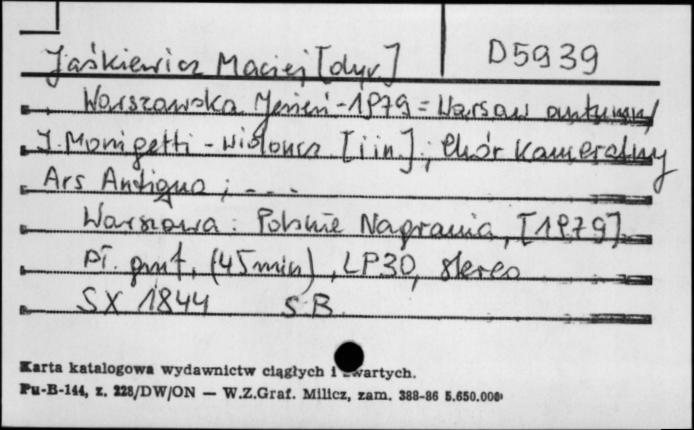 Jaśkiewicz Maciej [dyr.] D5939
Warszawska Jesień - 1979 = Warsaw autumn /
J. Monigetti - wiolonca [i in.]; Chór Kameralny
Ars Antiqua ; - - -
Warszawa : Polskie Nagrania, [1979].
Pł. gmf. (45 min), LP30, stereo
SX 1844 S.B.
Karta katalogowa wydawnictw ciągłych i zwartych.
Pu-B-144, z. 228/DW/ON — W.Z.Graf. Milicz, zam. 388-86 5.650.000